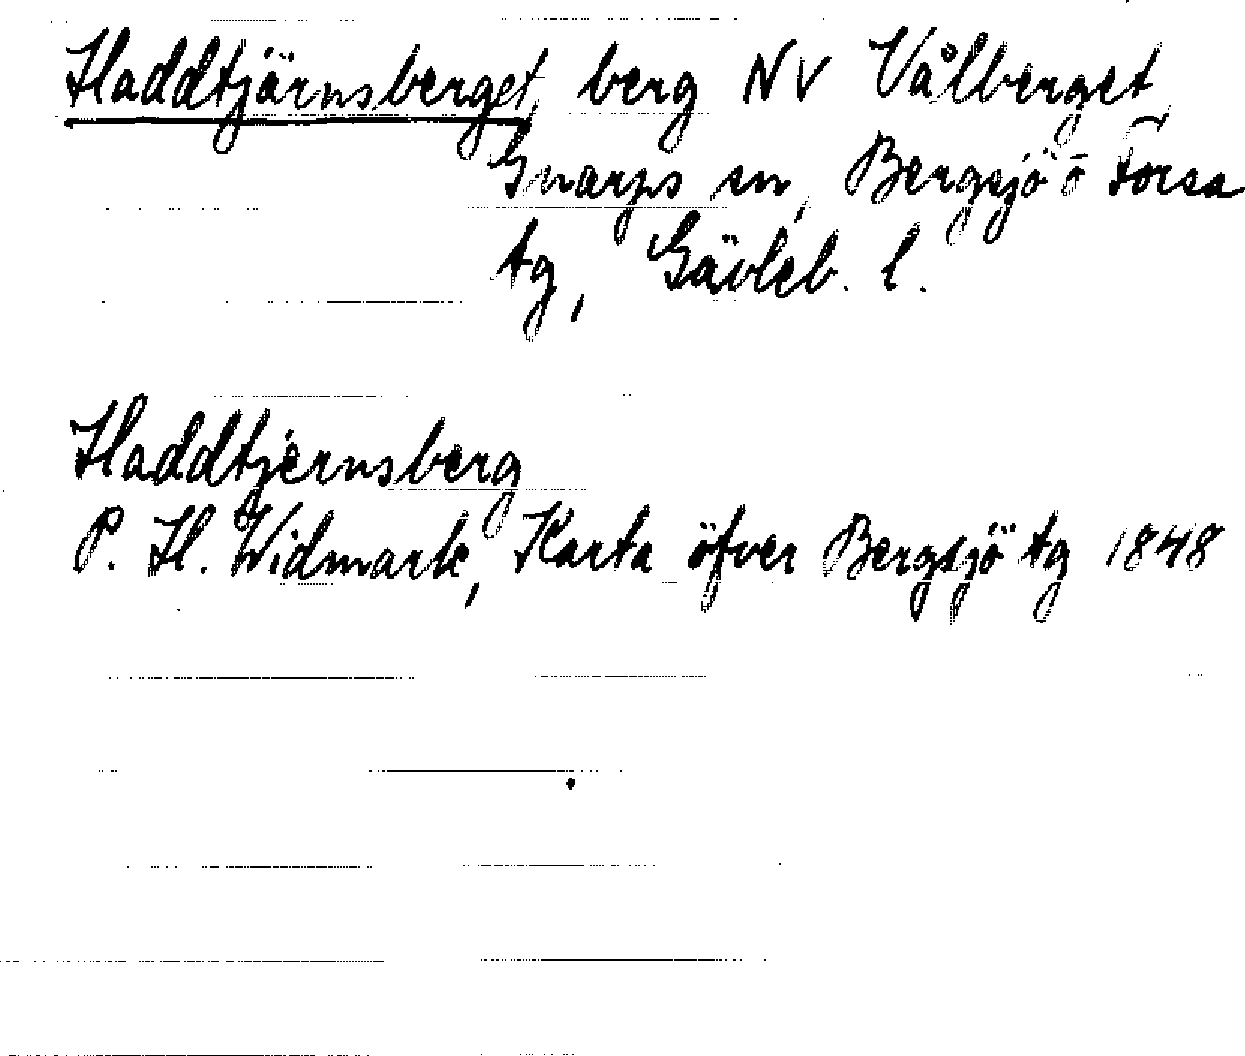 Haddtjärnsberget, berg NV Vålberget
Gnarps sn, Bergsjö o Forsa
tg, Gävleb. l.
Haddtjernsberg
P. H. Widmark, Karta öfver Bergsjö tg 1848